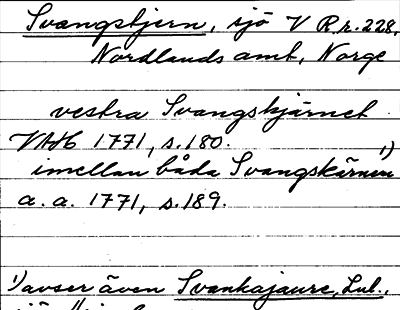 Svangstjern, sjö V R.r. 228,
Nordlands amt, Norge
vestra Svangskjärnet
VAH 1771, s. 180.
imellan båda Svangskärnen 1)
a. a. 1771, s. 189.
1) avser även Svankajaure, Lul.,